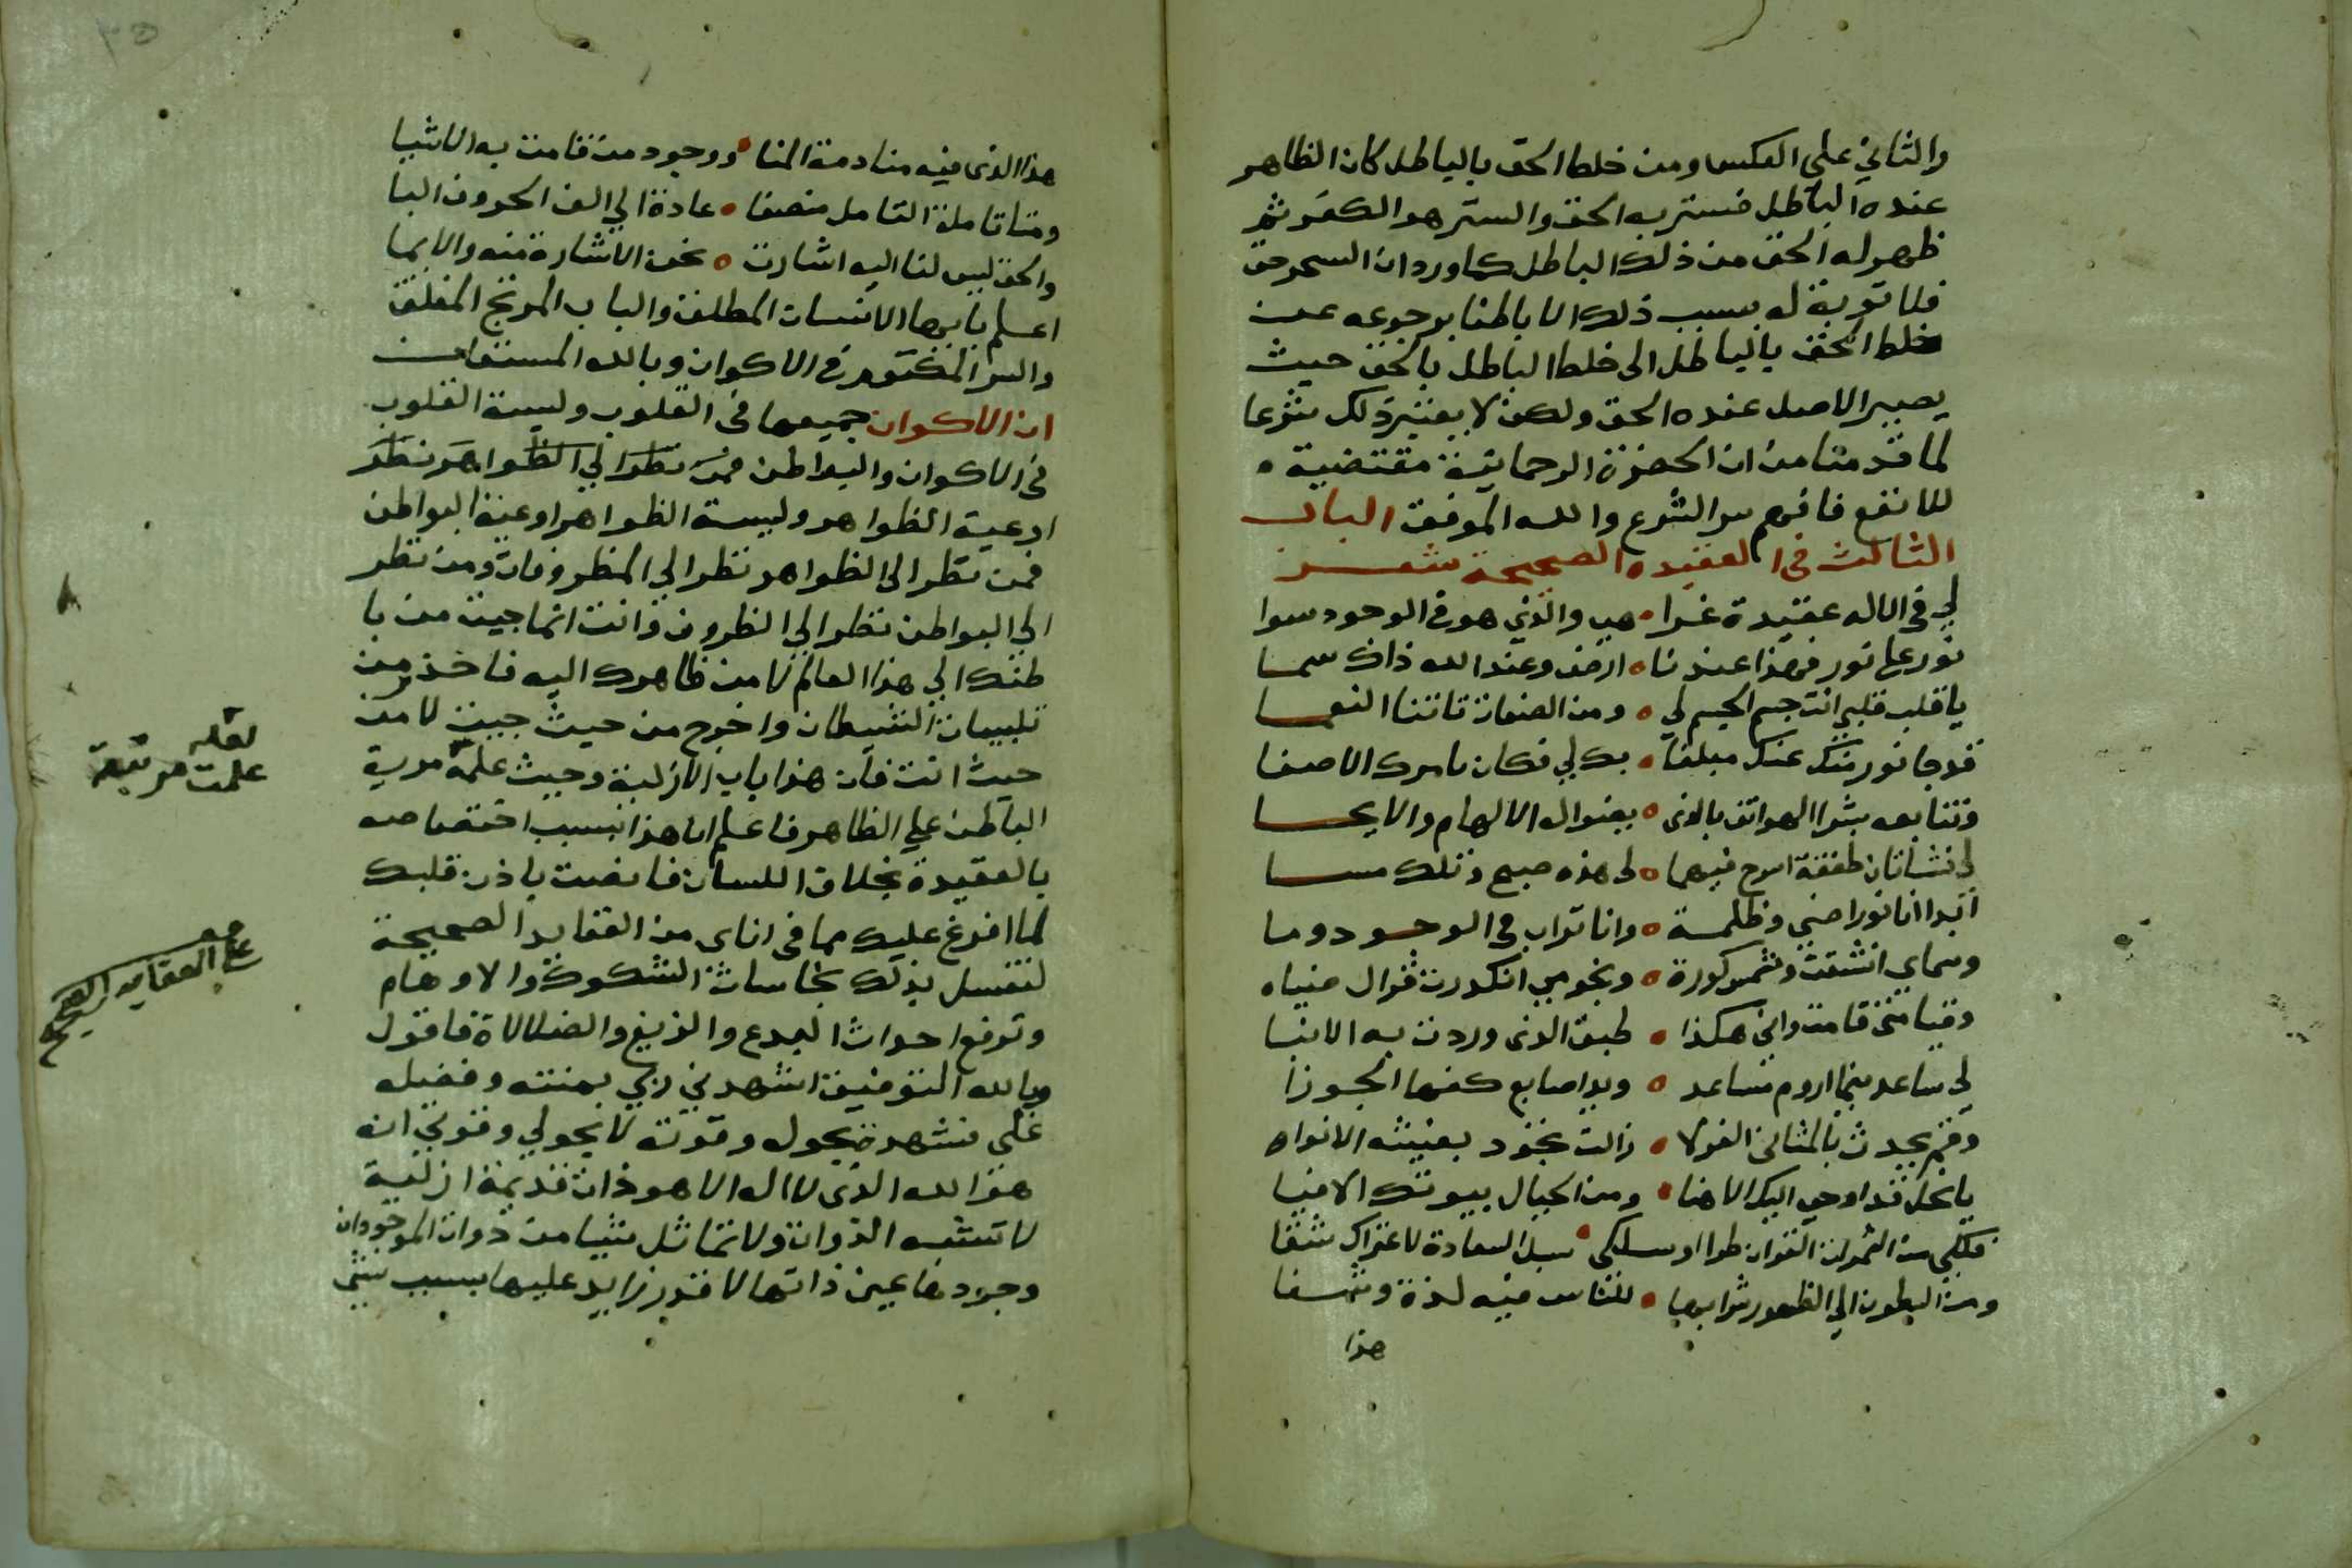 والثاني على العكس ومن خلط الحق بالباطل كان الظاهر
عنده الباطل فستر به الحق والستر هو الكفر ثم
ظهر له الحق من ذلك الباطل كما ورد ان السحر حق
فلا توبة له بسبب ذلك الا باطنا برجوعه عن
خلط الحق بالباطل الى خلط الباطل بالحق حيث
يصير الاصل عنده الحق ولكن لا يعتبر ذلك شرعا
لما قدمنا من ان الحضرة الرحمانية مقتضية
للانفع فافهم سر الشرع والله الموفق الباب
الثالث في العقيده الصحيحة شعر
لي في الاله عقيدة غرا هي والذي هو في الوجود سوا
نور على نور فهذا عندنا ارض وعند الله ذاك سما
يا قلب قلبي انت جسم الجسم لي ومن الصفات تاتنا النعما
قد جا نور منك عنك مبلغا بك لي فكان بامرك الاصغا
وتتابعه بشرا الهواتف بالذي بغنوال الالهام والايحا
لي نشاتان طفقة اسرح فيهما لي هذه صبح وتلك مسا
ابدا انا نور اضي وظلمة وانا تراب في الوجود وما
وسماي انشقت وشمس كورة ونجومي انكدرت فزال ضياه
وقيامتي قامت واني هكذا طبق الذي وردت به الانبا
لي ساعد بينما اروم تساعد وبدا صابع كفها الجوزا
وفم يحدث بالمثاني القولا زالت تجود بغيثه الانواه
يا نحل قد اوحي اليك الاهنا ومن الجبال بيوتك الافيا
فكلي من الثمرات القوان طرا او سلكي سبل السعادة لاعتراك شقا
ومن البطون الي الظهور شرابها للناس فيه لذة وشفا
هذا
هذا الذي فيه منادمة المنا ووجود من قامت به الاشيا
ومتا تاملة التامل منصفا عادة الي الف الحروف البا
والحق ليس لنا اليه اشارت نحن الاشارة منه والايما
اعلم يا ايها الانسان المطلق والباب المرتج المغلق
والسر المكتوم في الاكوان وبالله المستعان
ان الاكوان جميعها في القلوب وليسة القلوب
في الاكوان والبواطن فمن نظر الي الظواهر نظر
اوعية الظواهر وليسة الظواهر اوعية البواطن
فمن نظر الى الظواهر نظر الي المظروفات ومن نظر
الي البواطن نظر الي الظروف وانت انما جيت من با
طنك الي هذا العالم لا من ظاهرك اليه فاخذر من
تلبيسات الشيطان واخرج من حيث جيت لا من
حيث انت فان هذا باب الازلية وحيث علمة مرية
الباطن علي الظاهر فاعلم ان هذا بسبب اختصاصه
بالعقيدة بخلاف اللسان فانصت باذن قلبك
لما افرغ عليك مما في اناى من العقايد الصحيحة
لتغسل بذلك نجاسات الشكوك والاوهام
وترفع احداث البدع والزيغ والضلالاة فاقول
وبالله التوفيق اشهدني ربي بمنته وفضله
علي فشهدت بحوله وقوته لا بحولي وقوتي انه
هو الله الذي لا اله الا هو ذات قديمة ازلية
لا تشبه الذوات ولا تماثل شيا من ذوات الموجودات
وجودها عين ذاتها لا قدر زايد عليها بسبب شي
لعله
علمت مرتبة